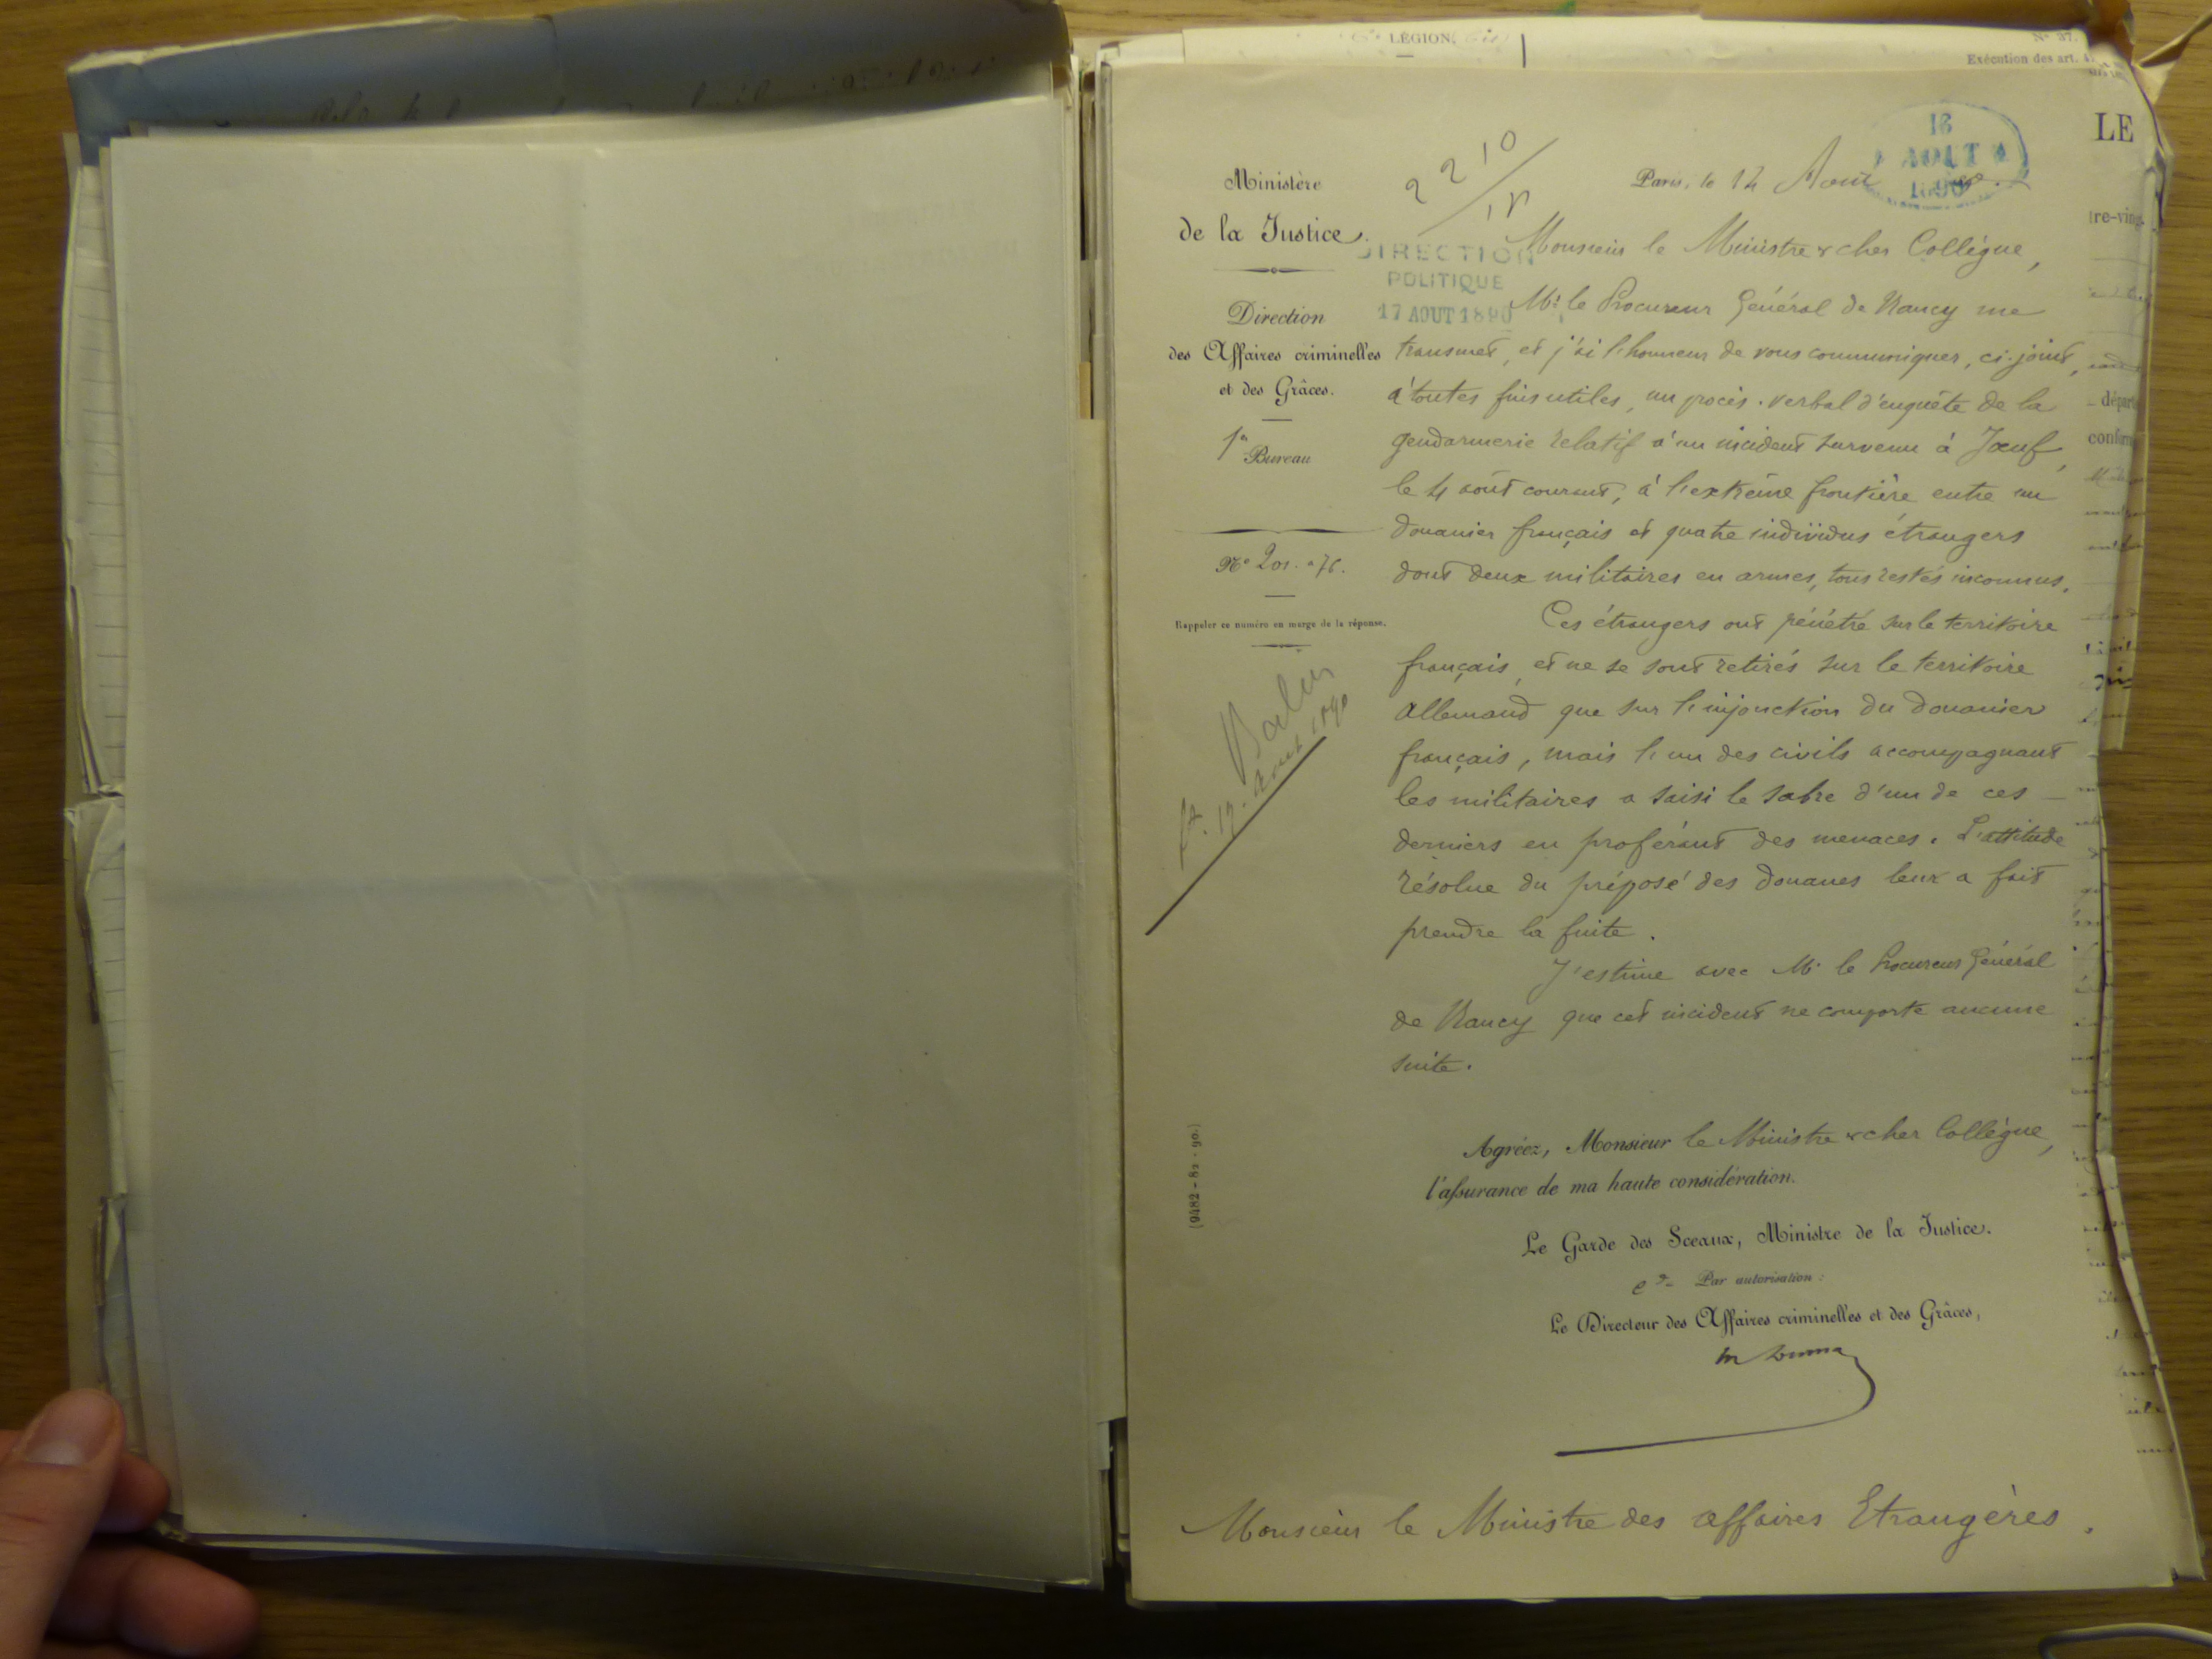 LÉGION
N° 37.
Exécution des art.
LE
Ministère
de la Justice.
Direction
des Affaires criminelles
et des Grâces.
1er Bureau
N° 201. a 76.
Rappeler ce numéro en marge de la réponse.
17. Août 1890
(9482 - 82 - 90.)
2210
Paris, le 14 Août
16
AOUT
1890
DIRECTION
POLITIQUE
17 AOUT 1890
Monsieur le Ministre & cher Collègue,
Mr. le Procureur Général de Nancy me
transmet, et j'ai l'honneur de vous communiquer, ci-joint,
à toutes fins utiles, un procès-verbal d'enquête de la
gendarmerie relatif à un incident survenu à Joeuf,
le 4 août courant, à l'extrême frontière entre un
douanier français et quatre individus étrangers
dont deux militaires en armes, tous restés inconnus.
Ces étrangers ont pénétré sur le territoire
français, et ne se sont retirés sur le territoire
Allemand que sur l'injonction du douanier
français, mais l'un des civils accompagnant
les militaires a saisi le sabre d'un de ces
derniers en proférant des menaces. L'attitude
résolue du préposé des douanes leur a fait
prendre la fuite.
J'estime avec M. le Procureur Général
de Nancy que cet incident ne comporte aucune
suite.
Agréez, Monsieur le Ministre & cher Collègue,
l'assurance de ma haute considération.
Le Garde des Sceaux, Ministre de la Justice.
Par autorisation :
Le Directeur des Affaires criminelles et des Grâces,
Monsieur le Ministre des Affaires Etrangères.